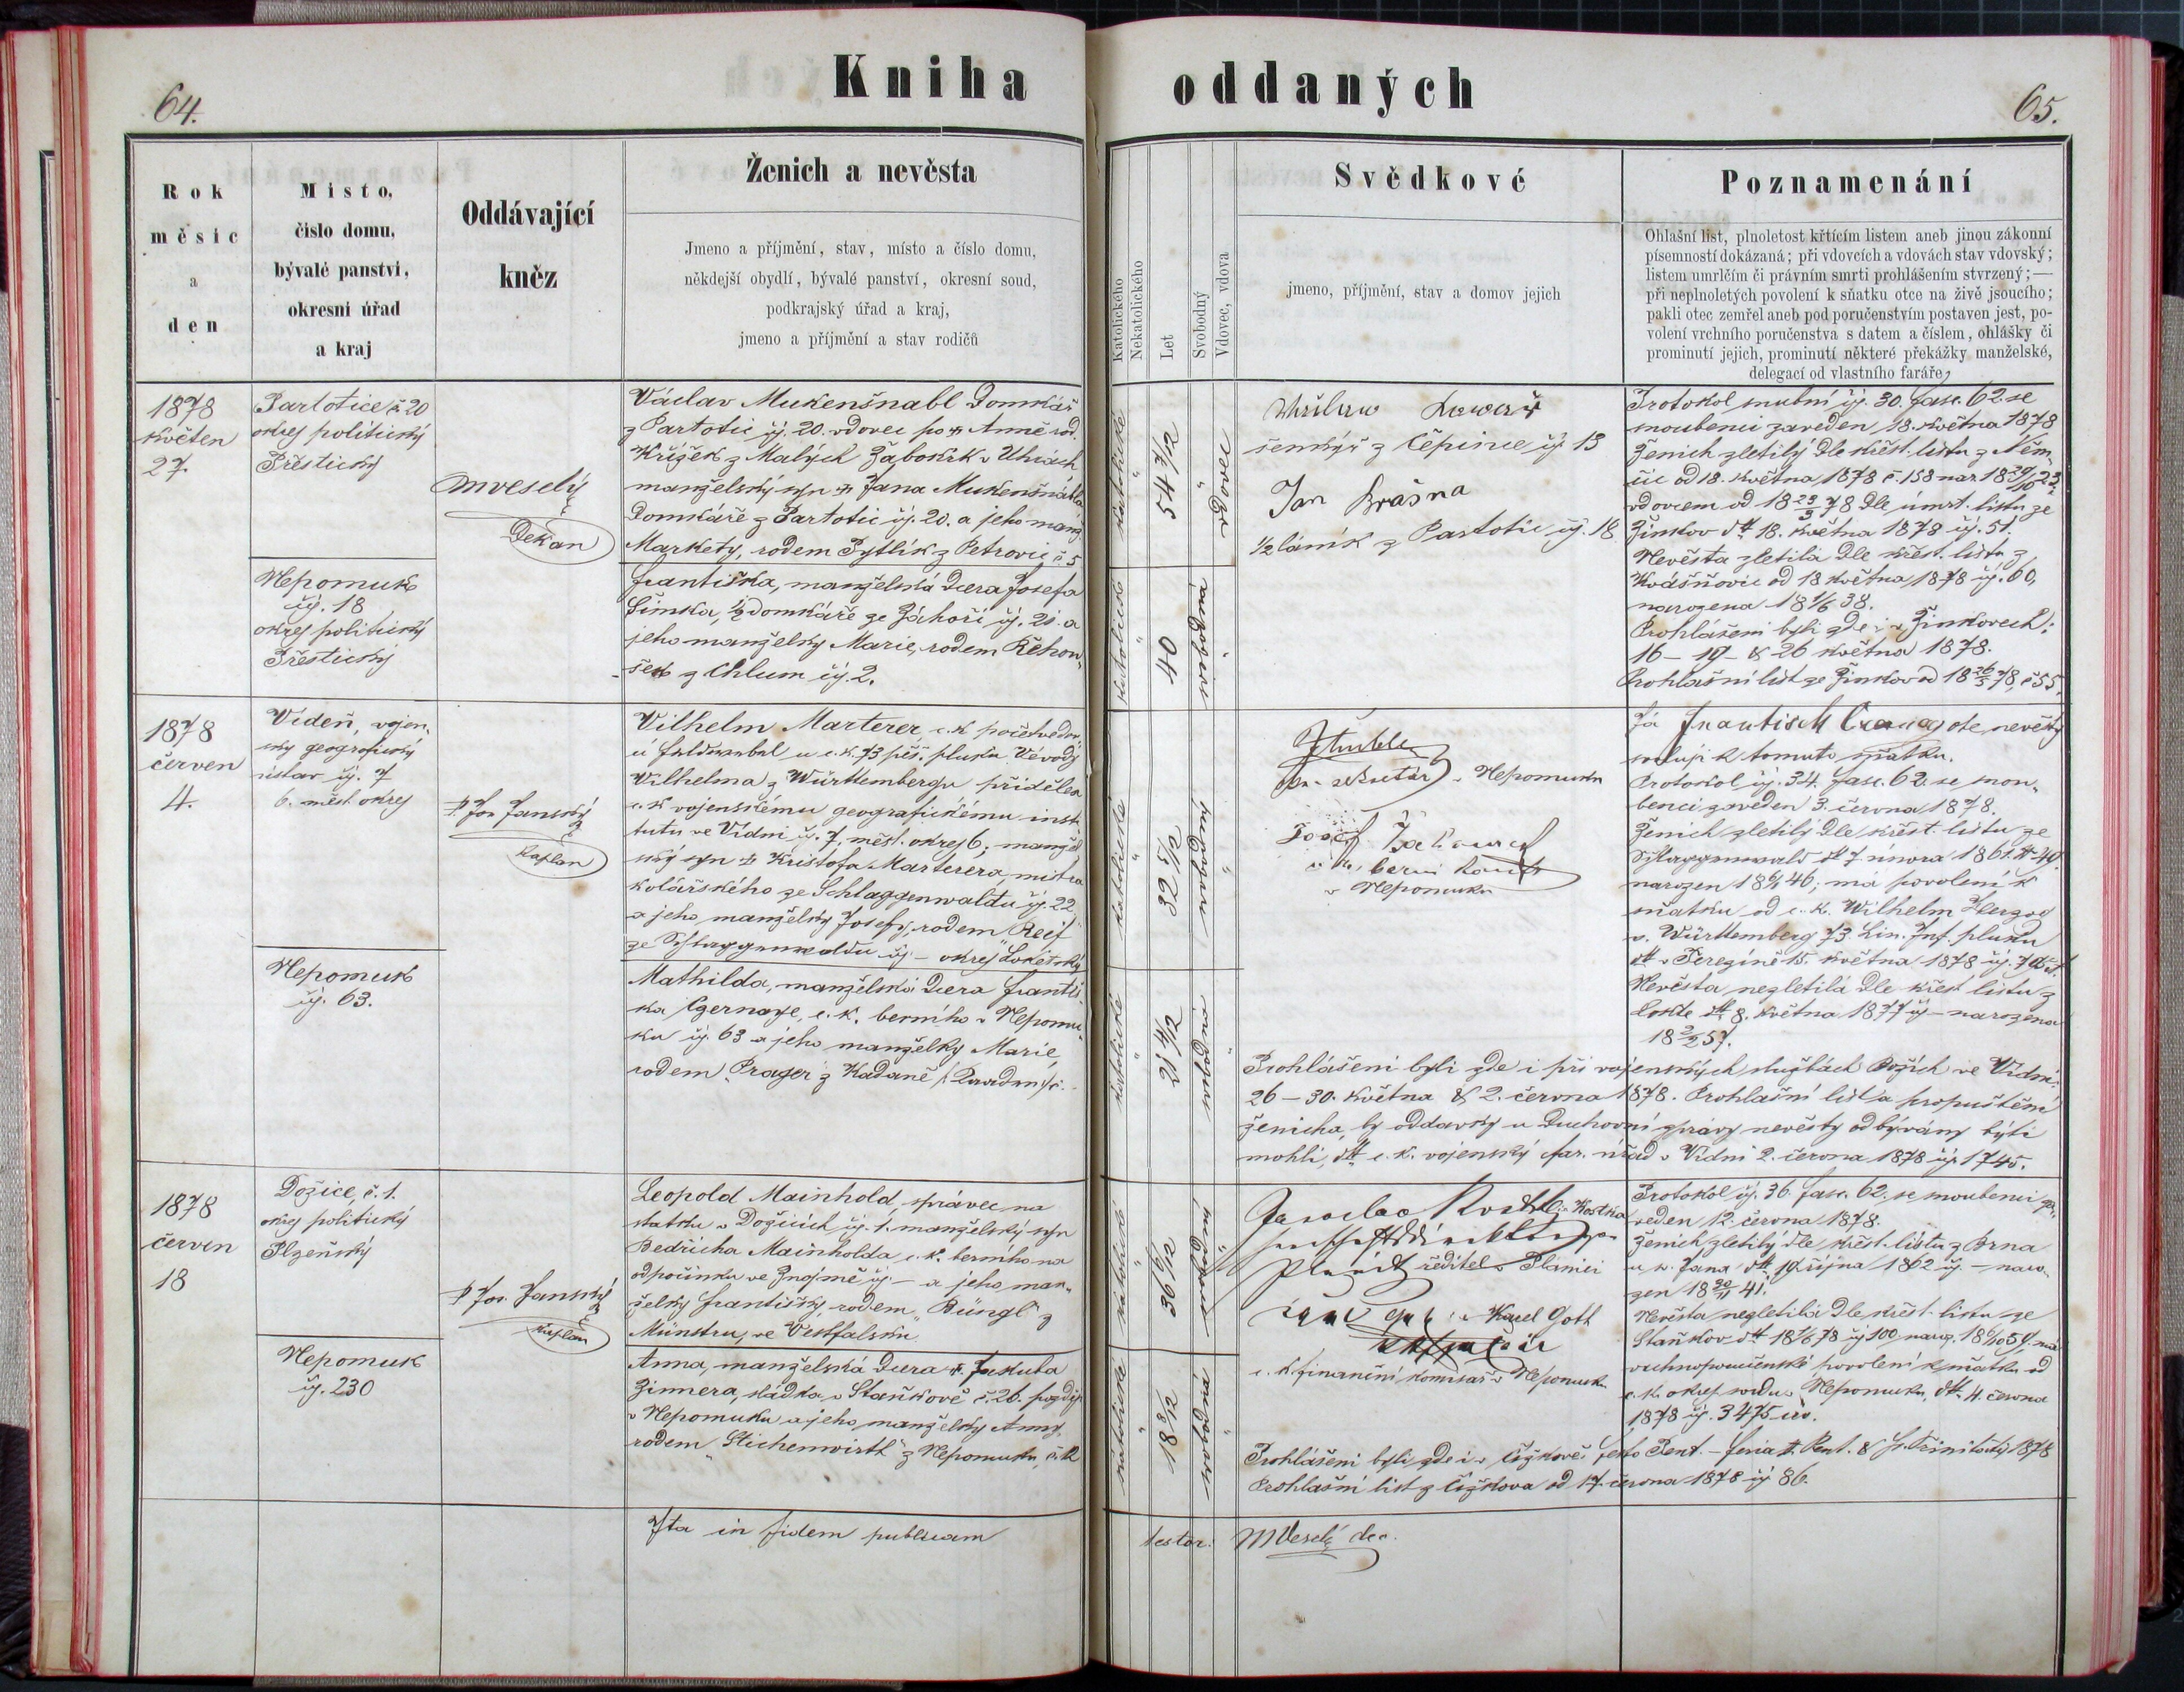 64.
Kniha
oddaných
65.
Rok
měsíc
a
den
Místo,
číslo domu,
bývalé panství,
okresní úřad
a kraj
Oddávající
kněz
Ženich a nevěsta
Jmeno a příjmění, stav, místo a číslo domu,
někdejší obydlí, bývalé panství, okresní soud,
podkrajský úřad a kraj,
jmeno a příjmění a stav rodičů
Katolického
Nekatolického
Let
Svobodný
Vdovec, vdova
Svědkové
jmeno, příjmění, stav a domov jejich
Poznamenání
Ohlašní list, plnoletost křtícím listem aneb jinou zákonní
písemností dokázaná; při vdovcích a vdovách stav vdovský;
listem umrlčím či právním smrti prohlášením stvrzený;—
při neplnoletých povolení k sňatku otce na živě jsoucího;
pakli otec zemřel aneb pod poručenstvím postaven jest, po-
volení vrchního poručenstva s datem a číslem, ohlášky či
prominutí jejich, prominutí některé překážky manželské,
delegací od vlastního faráře,
1878
květen
27.
Partotice č 20
okres politický
Přeštický
MVeselý
Děkan
Václav Mukenšnabl Domkář
z Partotic čj. 20. vdovec po † Anně rod.
Křížek z Malých Zábořk v Uhrách
manželský syn † Jana Mukenšnábla
Domkáře z Partotic čj. 20. a jeho manž.
Markety, rodem Pytlík z Petrovic č 5
Nepomuk
čj. 18
okres politický
Přeštický
Františka, manželská Dcera Josefa
Šimka, ½ domkáře ze Záhoří čj. 21. a
jeho manželky Marie, rodem Řehou-
šek z Chlum čj. 2.
katolické
54 7/12
vdovec
katolické
40
svobodná
šenkýř z Čepince čj. 13
Jan Brašna
½ láník z Partotic čj. 18
Protokol snubní čj. 30. fasc. 62. se
snoubenci zaveden 18. května 1878
Ženich zletilý dle křest. listu z Něm-
čic od 18. května 1878 č. 158 nar.
vdovcem od 18 78 Dle úmrt. listu ze
Žinkov dtt 18. května 1878 čj. 51.
Nevěsta zletilá Dle křest. listu z
Kvášňovic od 18 května 1878 čj. 60,
narozena 18 1/6 38.
Prohlášeni byli zde i v Žinkovech:
16 – 19 – & 26 května 1878.
Prohlašní list ze Žinkov od 18 26/5 78, č 55.
1878
červen
4.
Vídeň, vojen-
ský geografický
ústav čj. 7
6. měst. okres
P. Jos. Janský
kaplan
Vilhelm Marterer, c. k. početvedou-
cí u c. k. 73 pěš. pluku Vévody
Wilhelma z Württembergu přidělen
c. k vojenskému geografickému insti-
tutu ve Vídni čj. 7, měst. okres 6; manžel-
ský syn † Kristofa Marterera, mistra
kolářského ze Schlaggenwaldu čj. 22
a jeho manželky Josefy, rodem „Reif"
ze Schlaggenwaldu čj. – okres Loketský
Nepomuk
čj. 63.
Mathilda, manželská Dcera Františ-
ka Czernaye, c. k. berního v Nepomu-
ku čj. 63 a jeho manželky Marie,
rodem „Prager z Kadaně
katolické
32 5/12
svobodný
katolické
21 4/12
svobodná
v Nepomuku
Josef
berní
v Nepomuku
Já otec nevěsty
svoluji k tomuto sňatku.
Protokol čj. 34. fasc. 62. se snou-
benci zaveden 3. června 1878.
Ženich zletilý Dle křest. listu ze
Schlaggenwald dtt 7 února 1861.
narozen 18 6/1 46; má povolení k
sňatku od c. k. Wilhelm Herzog
v. Württemberg 73. Lin. Inf. pluku
15. května 1878
Nevěsta nezletilá Dle křest. listu z
Lokte dtt 8. května 1877 čj – narozena
18 2/2 57.
Prohlášeni byli zde i při vojenských službách Božích ve Vídni:
26 – 30. května & 2. června 1878. Prohlašní list a propuštění
ženicha, by oddavky u Duchovní zprávy nevěsty odbývány býti
mohli, dtt c. k. vojenský far. úřad v Vídni 2. června 1878 čj. 1745.
1878
červen
18
Dožice, č. 1.
okres politický
Plzeňský
P Jos. Janský
kaplan
Leopold Mainhold, správce na
statku v Dožicích čj. 1. manželský syn
Bedřicha Mainholda c. k. berního na
odpočinku ve Znojmě čj. – a jeho man-
želky Františky, rodem „Büngl" z
Münstru, ve Vestfalsku
Nepomuk
čj. 230
Anna, manželská Dcera † Jakuba
Zinnera, sládka v Staňkově č. 26. později
v Nepomuku a jeho manželky Anny,
rodem „Stichenwirth" z Nepomuku,
katolické
36 6/12
svobodný
katolické
18 8/12
svobodná
Jaroslav Kostka Kostka
ředitel v Plánici
Karel Goth
c. k. finanční komisař v Nepomuku
Protokol čj. 36. fasc. 62. se snoubenci za-
veden 12. června 1878.
Ženich zletilý dle křest. listu z Brna
u sv. Jana dtt 19 října 1862 čj. – naro-
zen 18 30/11 41.
Nevěsta nezletilá Dle křest. listu ze
Staňkov dtt 18 1/6 78 čj 100, naroz. 18 59, má
vrchnoporučenské povolení k sňatku od
c. k. okres. soudu v Nepomuku, dtt. 4. června
1878 čj. 3475 civ.
Prohlášeni byli zde i v Čížkově Pent. – feria II. Pent. & Trinitatis 1878
Prohlašní list z Čížkova od 17. června 1878 čj 86.
Ita in fidem publicam
testor. MVeselý dec.